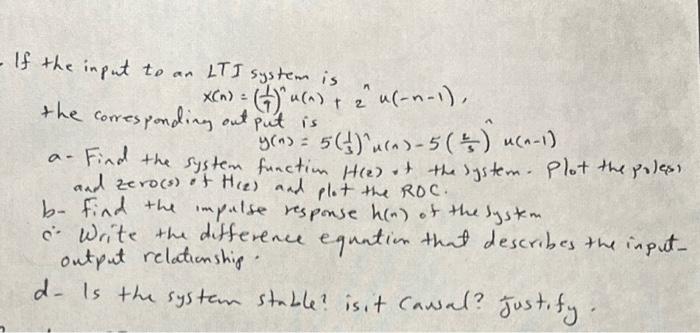 - If the input to an LTI system is
x(n) = (1/4)^n u(n) + 2^n u(-n-1),
the corresponding output is
y(n) = 5(1/3)^n u(n) - 5(2/3)^n u(n-1)
a- Find the system function H(z) of the system. Plot the poles(s)
and zero(s) of H(z) and plot the ROC.
b- find the impulse response h(n) of the system
c- Write the difference equation that describes the input-
output relationship.
d- Is the system stable? is it causal? Justify.